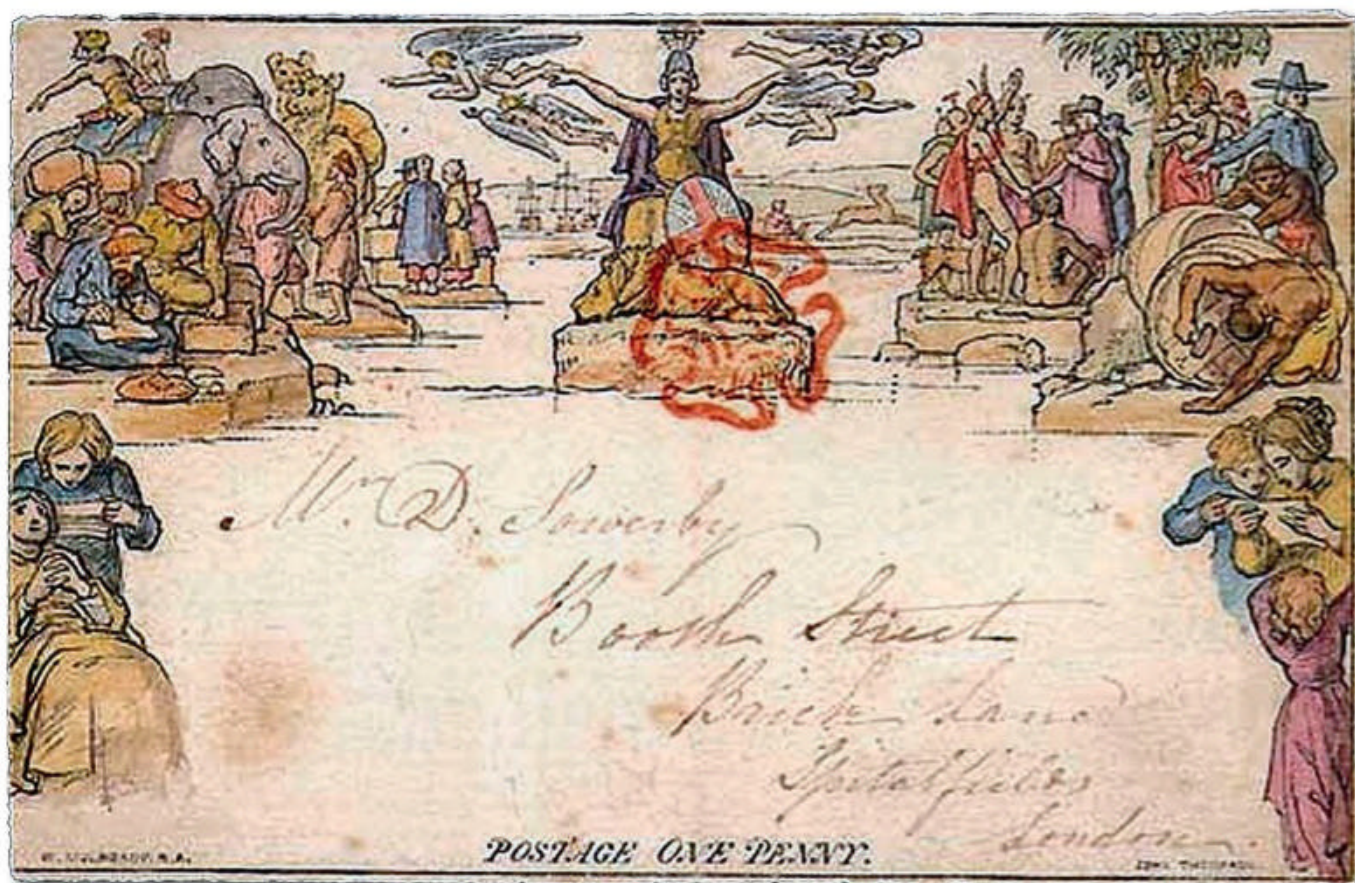 Mr. D. Sowerby
Booth Street
Brick Lane
Spitalfields
London.
W. MULREADY. R.A.
POSTAGE ONE PENNY.
JOHN THOMPSON